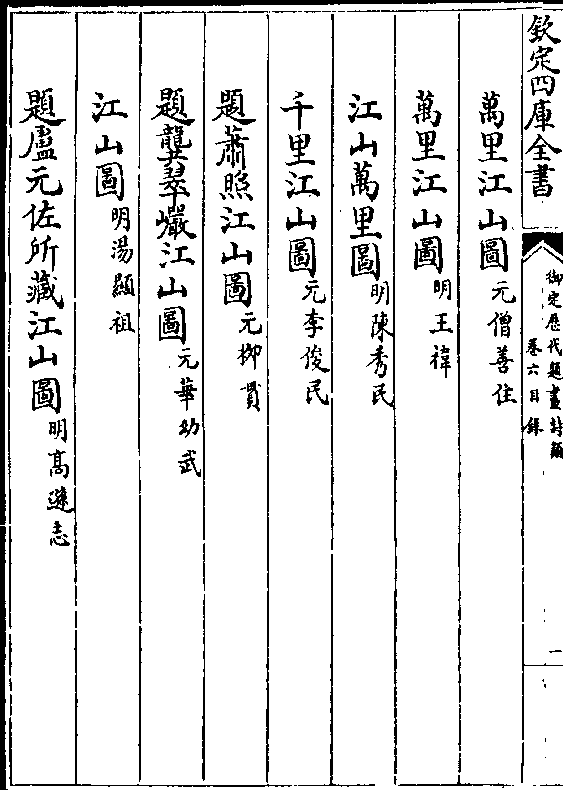 欽定四庫全書
御定歴代題畫詩類
卷六目録
一
萬里江山圖元僧善住
萬里江山圖明王褘
江山萬里圖明陳秀民
千里江山圖元李俊民
題蕭照江山圖元柳貫
題龔翠巖江山圖元華幼武
江山圖明湯顯祖
題盧元佐所藏江山圖明髙遜志